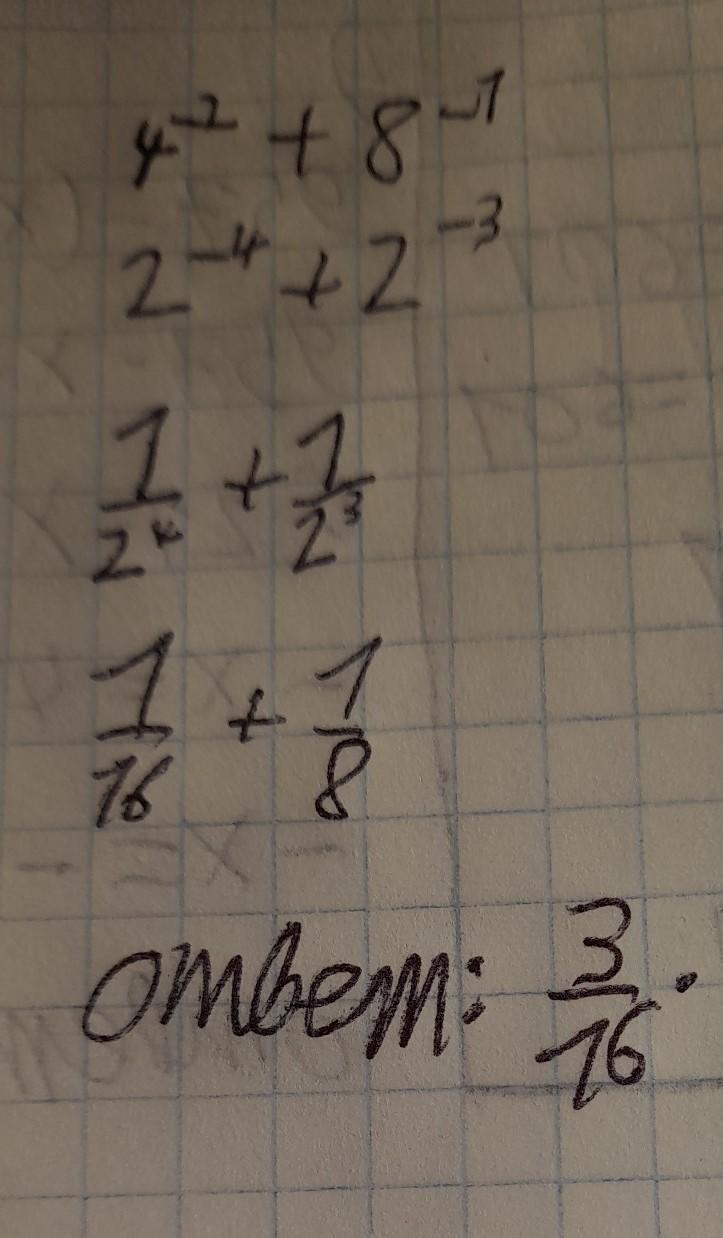 4⁻² + 8⁻¹
2⁻⁴ + 2⁻³
1/2⁴ + 1/2³
1/16 + 1/8
ответ: 3/16.